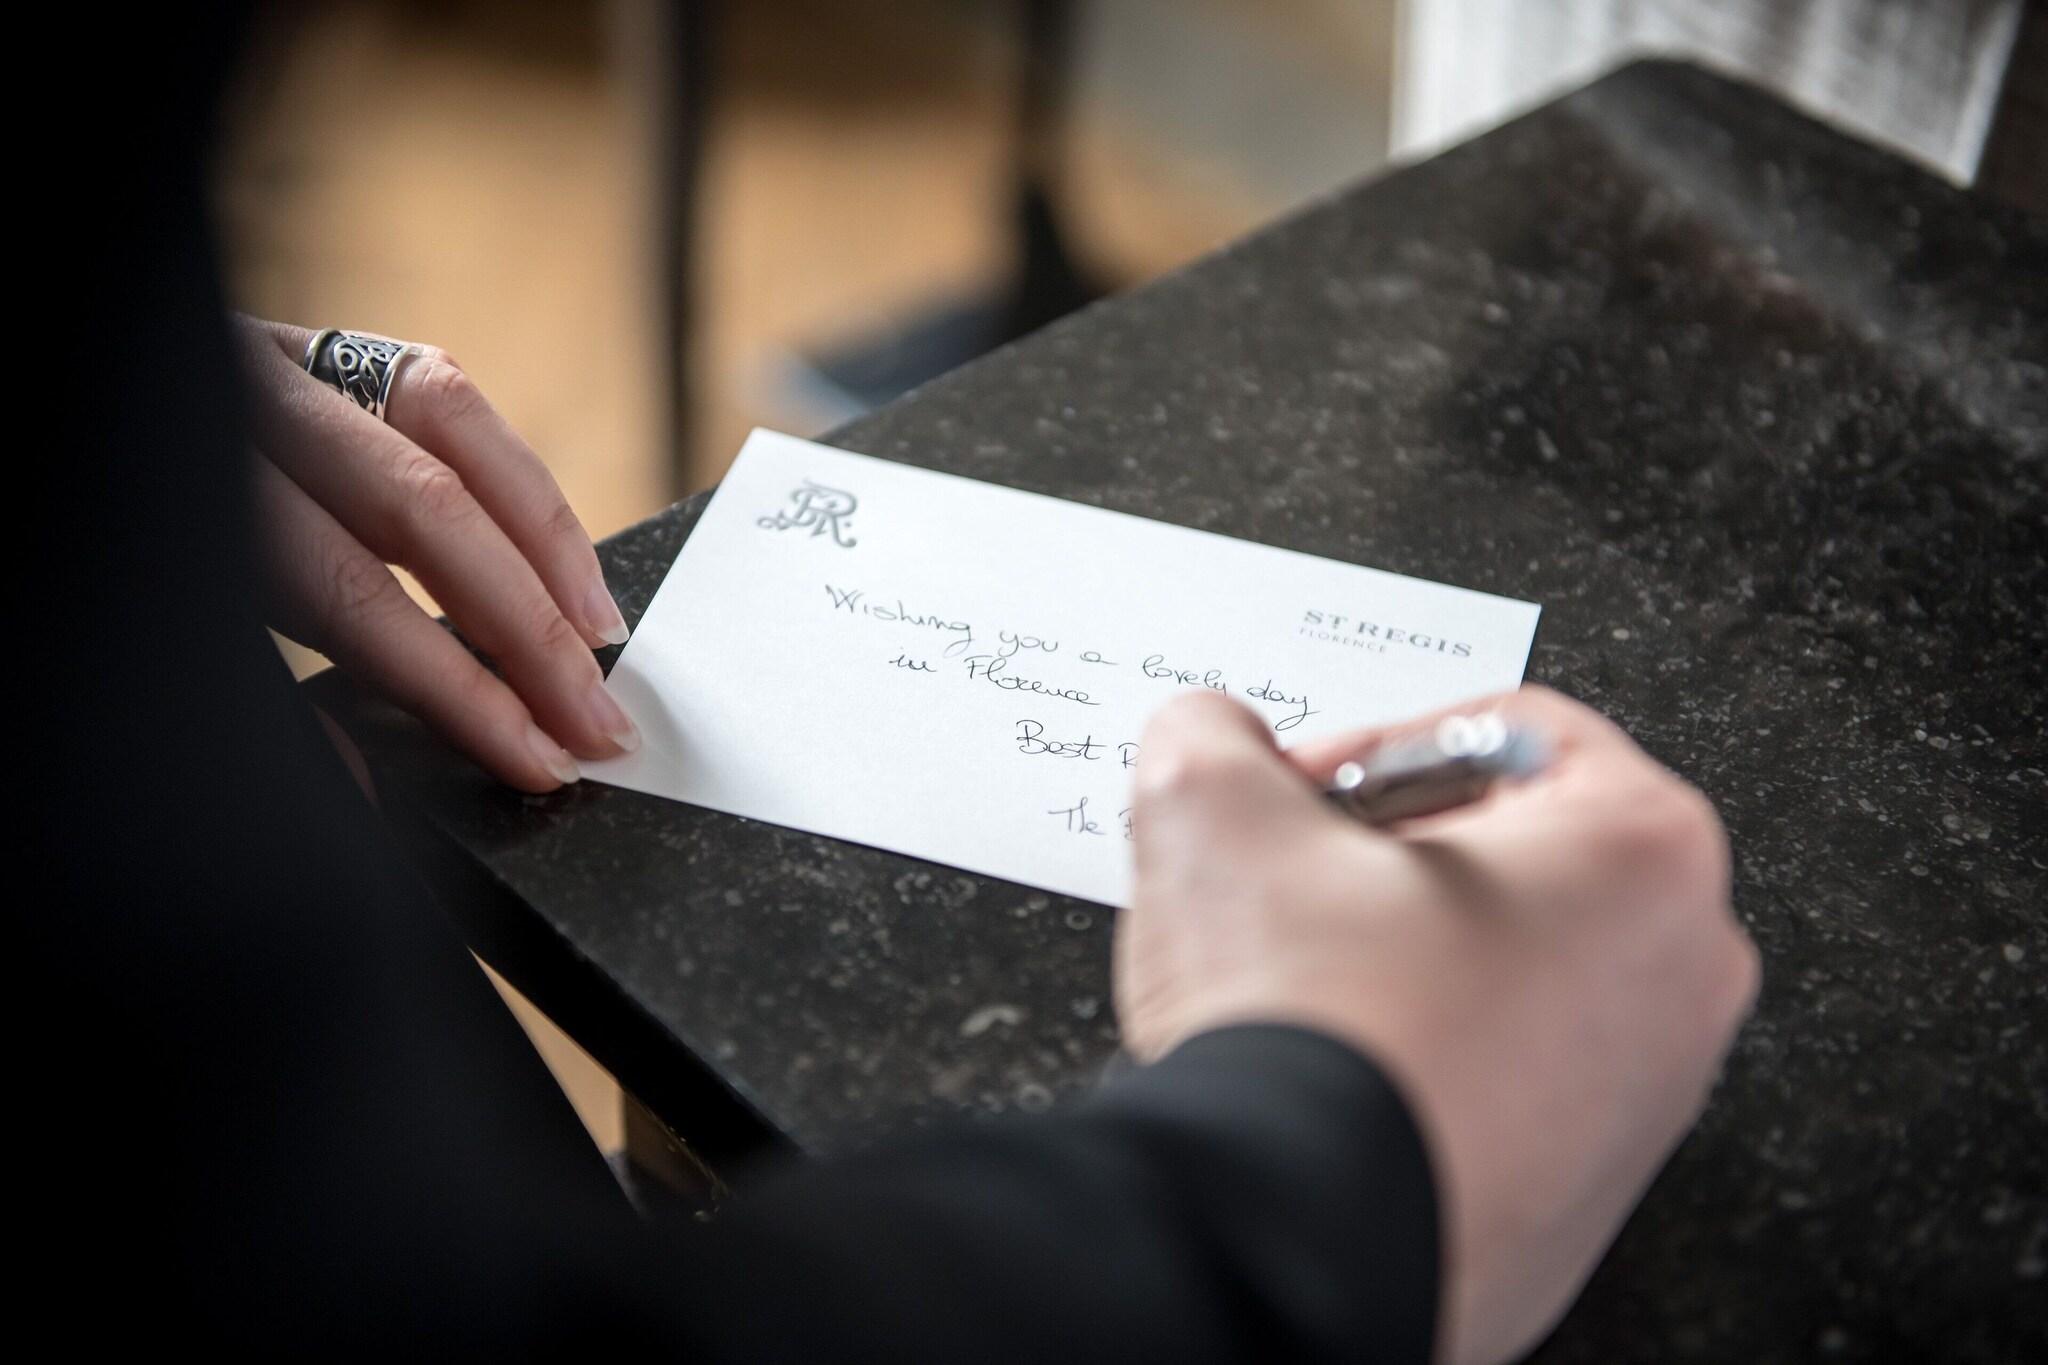 ST REGIS
FLORENCE
Wishing you a lovely day
in Florence
Best R
The